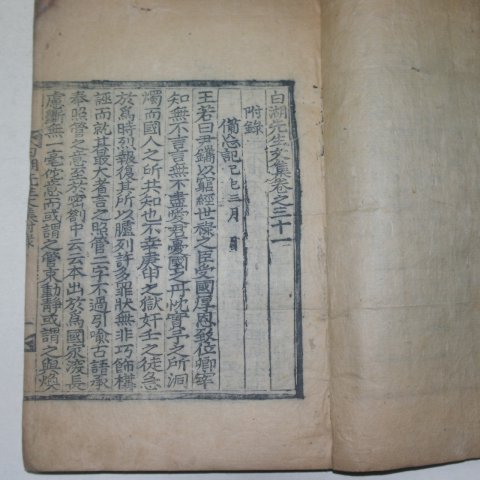 白湖先生文集卷之三十一
附錄
備忘記 己巳三月 日
王若曰尹鑴以窮經世祿之臣受國厚恩致位卿宰
知無不言言無不盡愛君憂國之丹忱實予之所洞
燭而國人之所共知也不幸庚申之獄奸壬之徒急
於爲時烈報復其所以臚列許多罪狀無非巧飾構
誣而就其最大者言之照管二字不過引喩古語承
奉照管之意至於密劄中云云本出於爲國家深長
慮斷無一毫他意而或謂之管束動靜或謂之與煥
白湖先生文集附錄